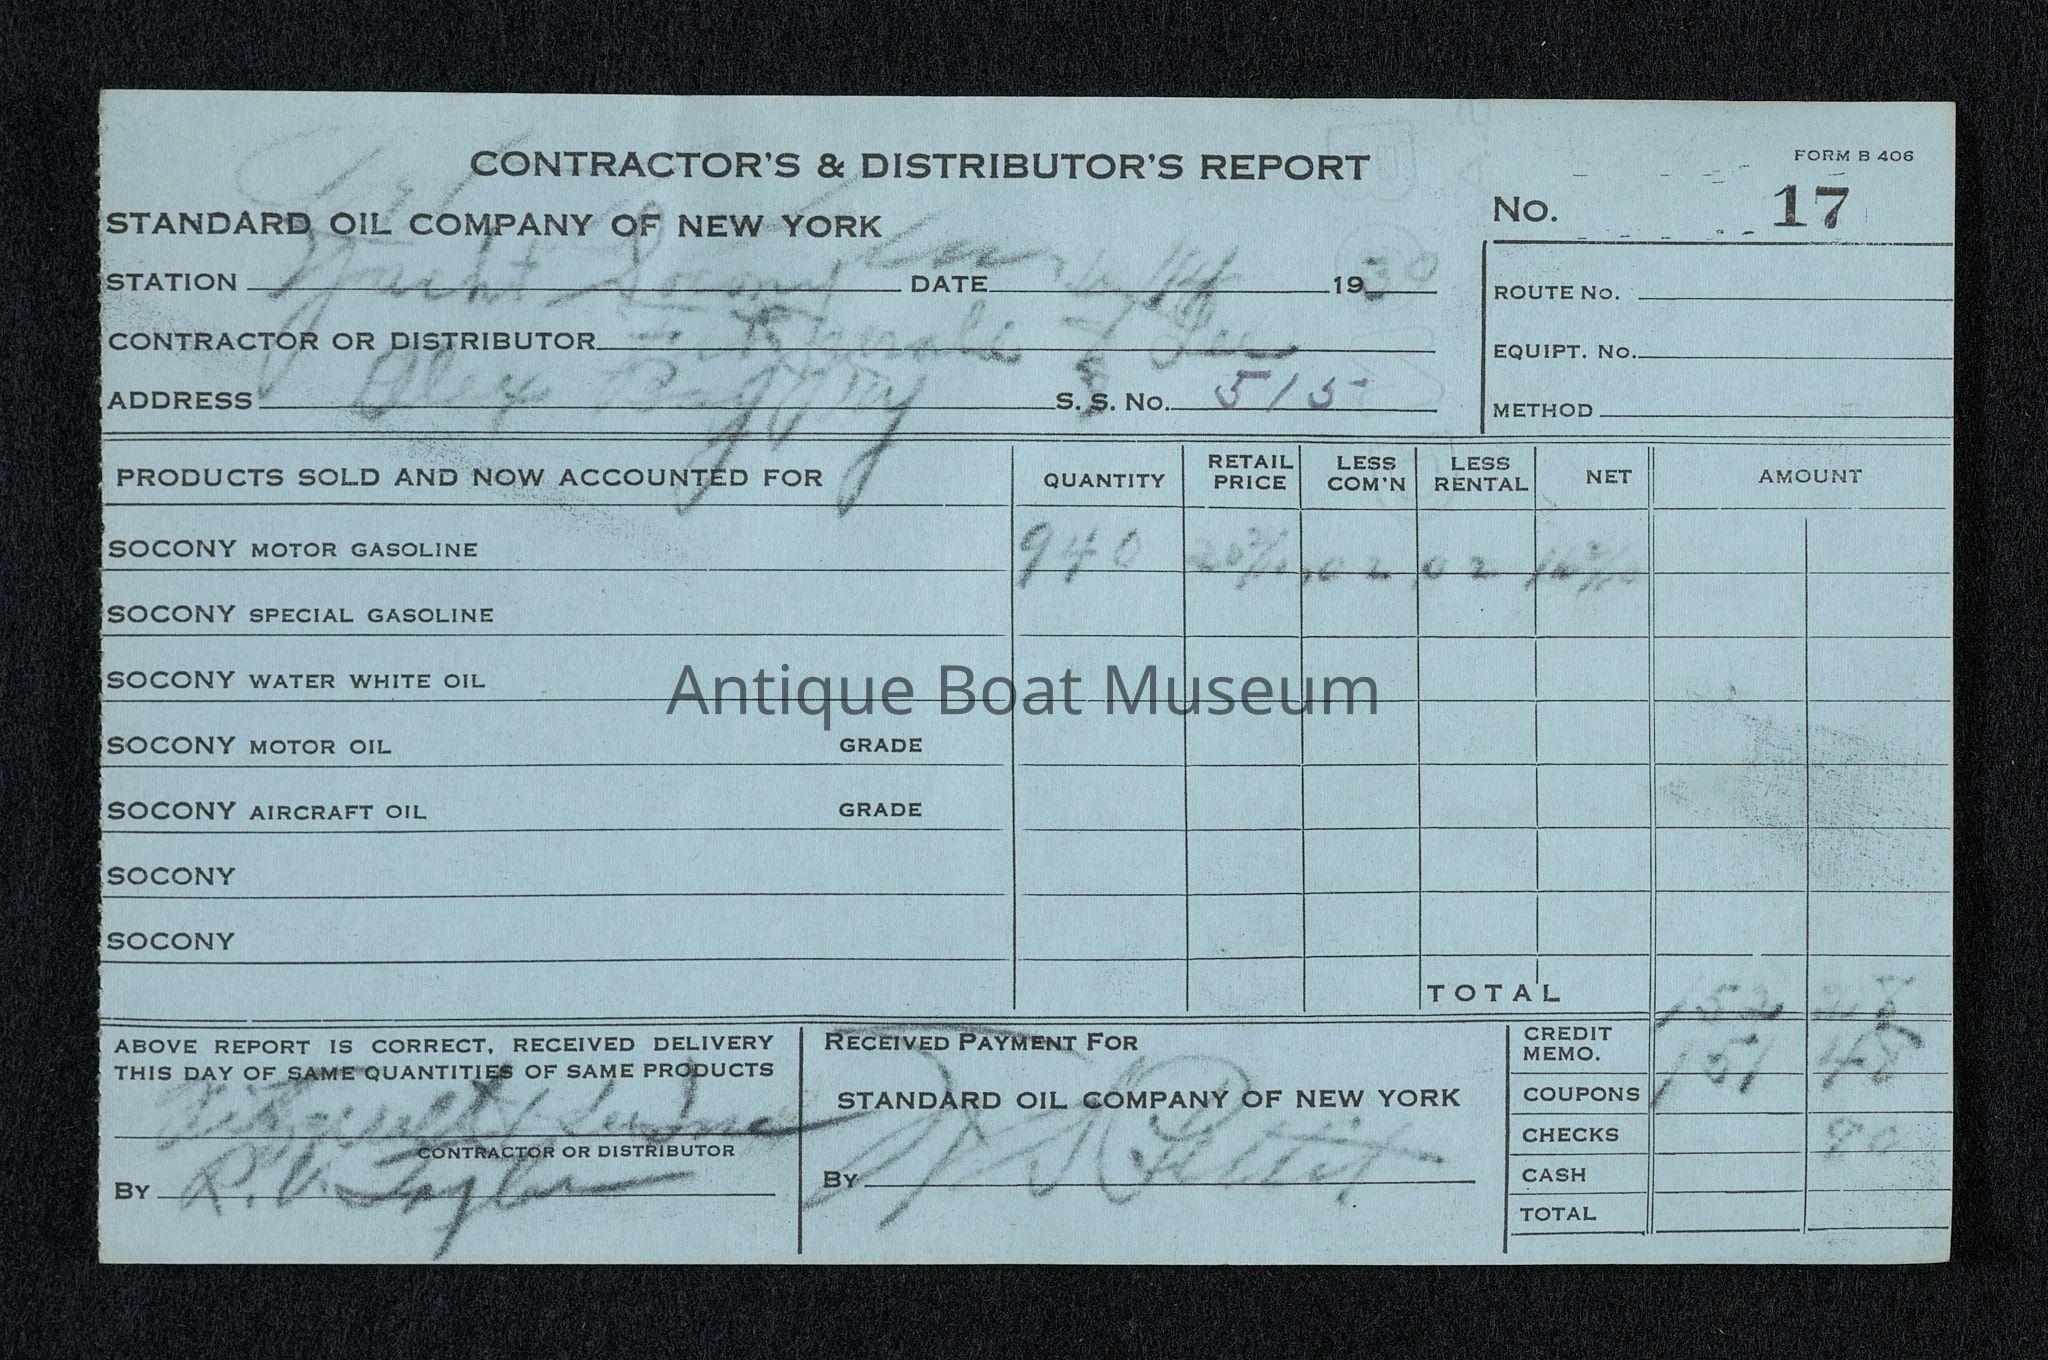 FORM B 406
CONTRACTOR'S & DISTRIBUTOR'S REPORT
STANDARD OIL COMPANY OF NEW YORK
No. 17
STATION Yacht Socony DATE 1930
ROUTE No.
CONTRACTOR OR DISTRIBUTOR & Lee
EQUIPT. No.
ADDRESS Alex Bay NY S. S. No. 515
METHOD
PRODUCTS SOLD AND NOW ACCOUNTED FOR QUANTITY RETAIL PRICE LESS COM'N LESS RENTAL NET AMOUNT
SOCONY MOTOR GASOLINE 940 20 2/10 .02 .02 16 2/10
SOCONY SPECIAL GASOLINE
SOCONY WATER WHITE OIL
Antique Boat Museum
SOCONY MOTOR OIL GRADE
SOCONY AIRCRAFT OIL GRADE
SOCONY
SOCONY
TOTAL 152 28
ABOVE REPORT IS CORRECT, RECEIVED DELIVERY
THIS DAY OF SAME QUANTITIES OF SAME PRODUCTS
CONTRACTOR OR DISTRIBUTOR
By R. V. Taylor
RECEIVED PAYMENT FOR
STANDARD OIL COMPANY OF NEW YORK
By Pettit
CREDIT MEMO. 151 48
COUPONS
CHECKS 80
CASH
TOTAL